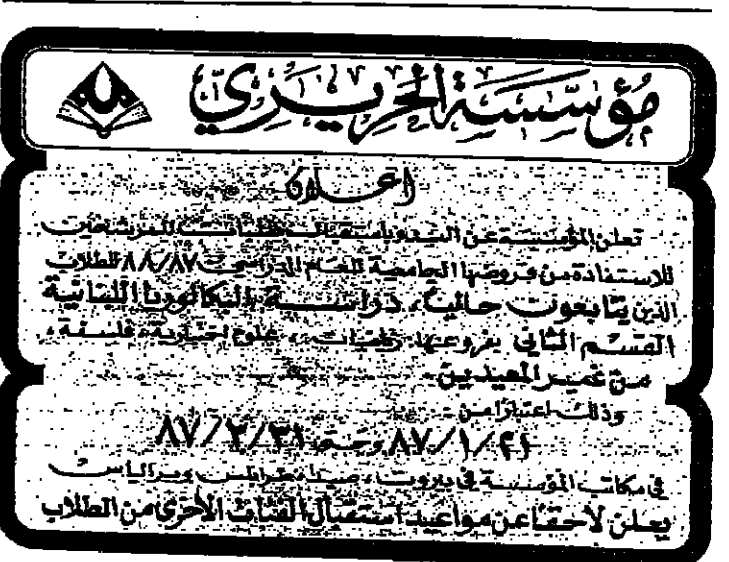 مؤسسة الحريري
اعلان
تعلن المؤسسة عن البدء باستقبال طلبات الترشيحات
للاستفادة من قروضها الجامعية للعام الدراسي ٨٨/٨٧ للطلاب
الذين يتابعون حالياً، دراسة البكالوريا اللبنانية
القسم الثاني بفروعها: رياضيات، علوم اختبارية، فلسفة،
من غير المعيدين.
وذلك اعتبارا من
٨٧/١/٢١ وحتى ٨٧/٣/٣١
في مكاتب المؤسسة في بيروت، صيدا، طرابلس وبرالياس
يعلن لاحقاً عن مواعيد استقبال الفئات الأخرى من الطلاب